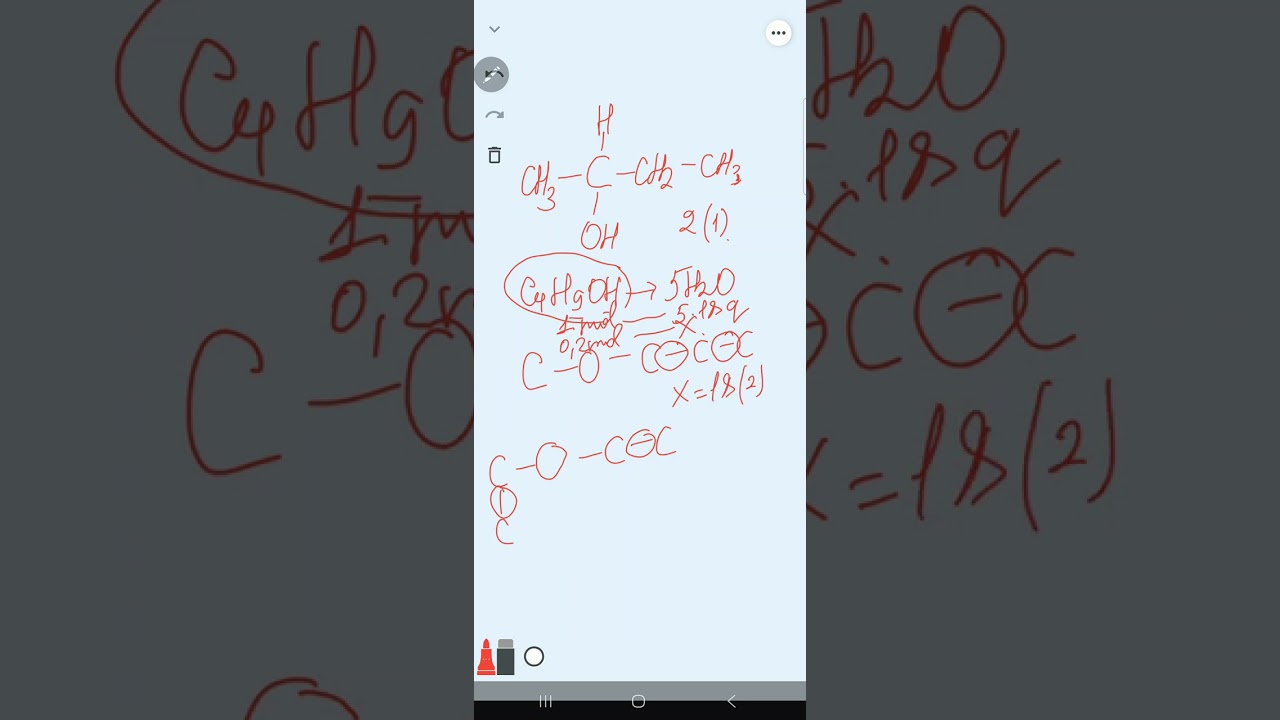 H
CH3 — C — CH2 — CH3
OH 2(1).
C4H9OH → 5H2O
1 mol — 5.18q
0,2mol — X
C — O — C — C — C
X = 18(2)
C — O — C — C
C